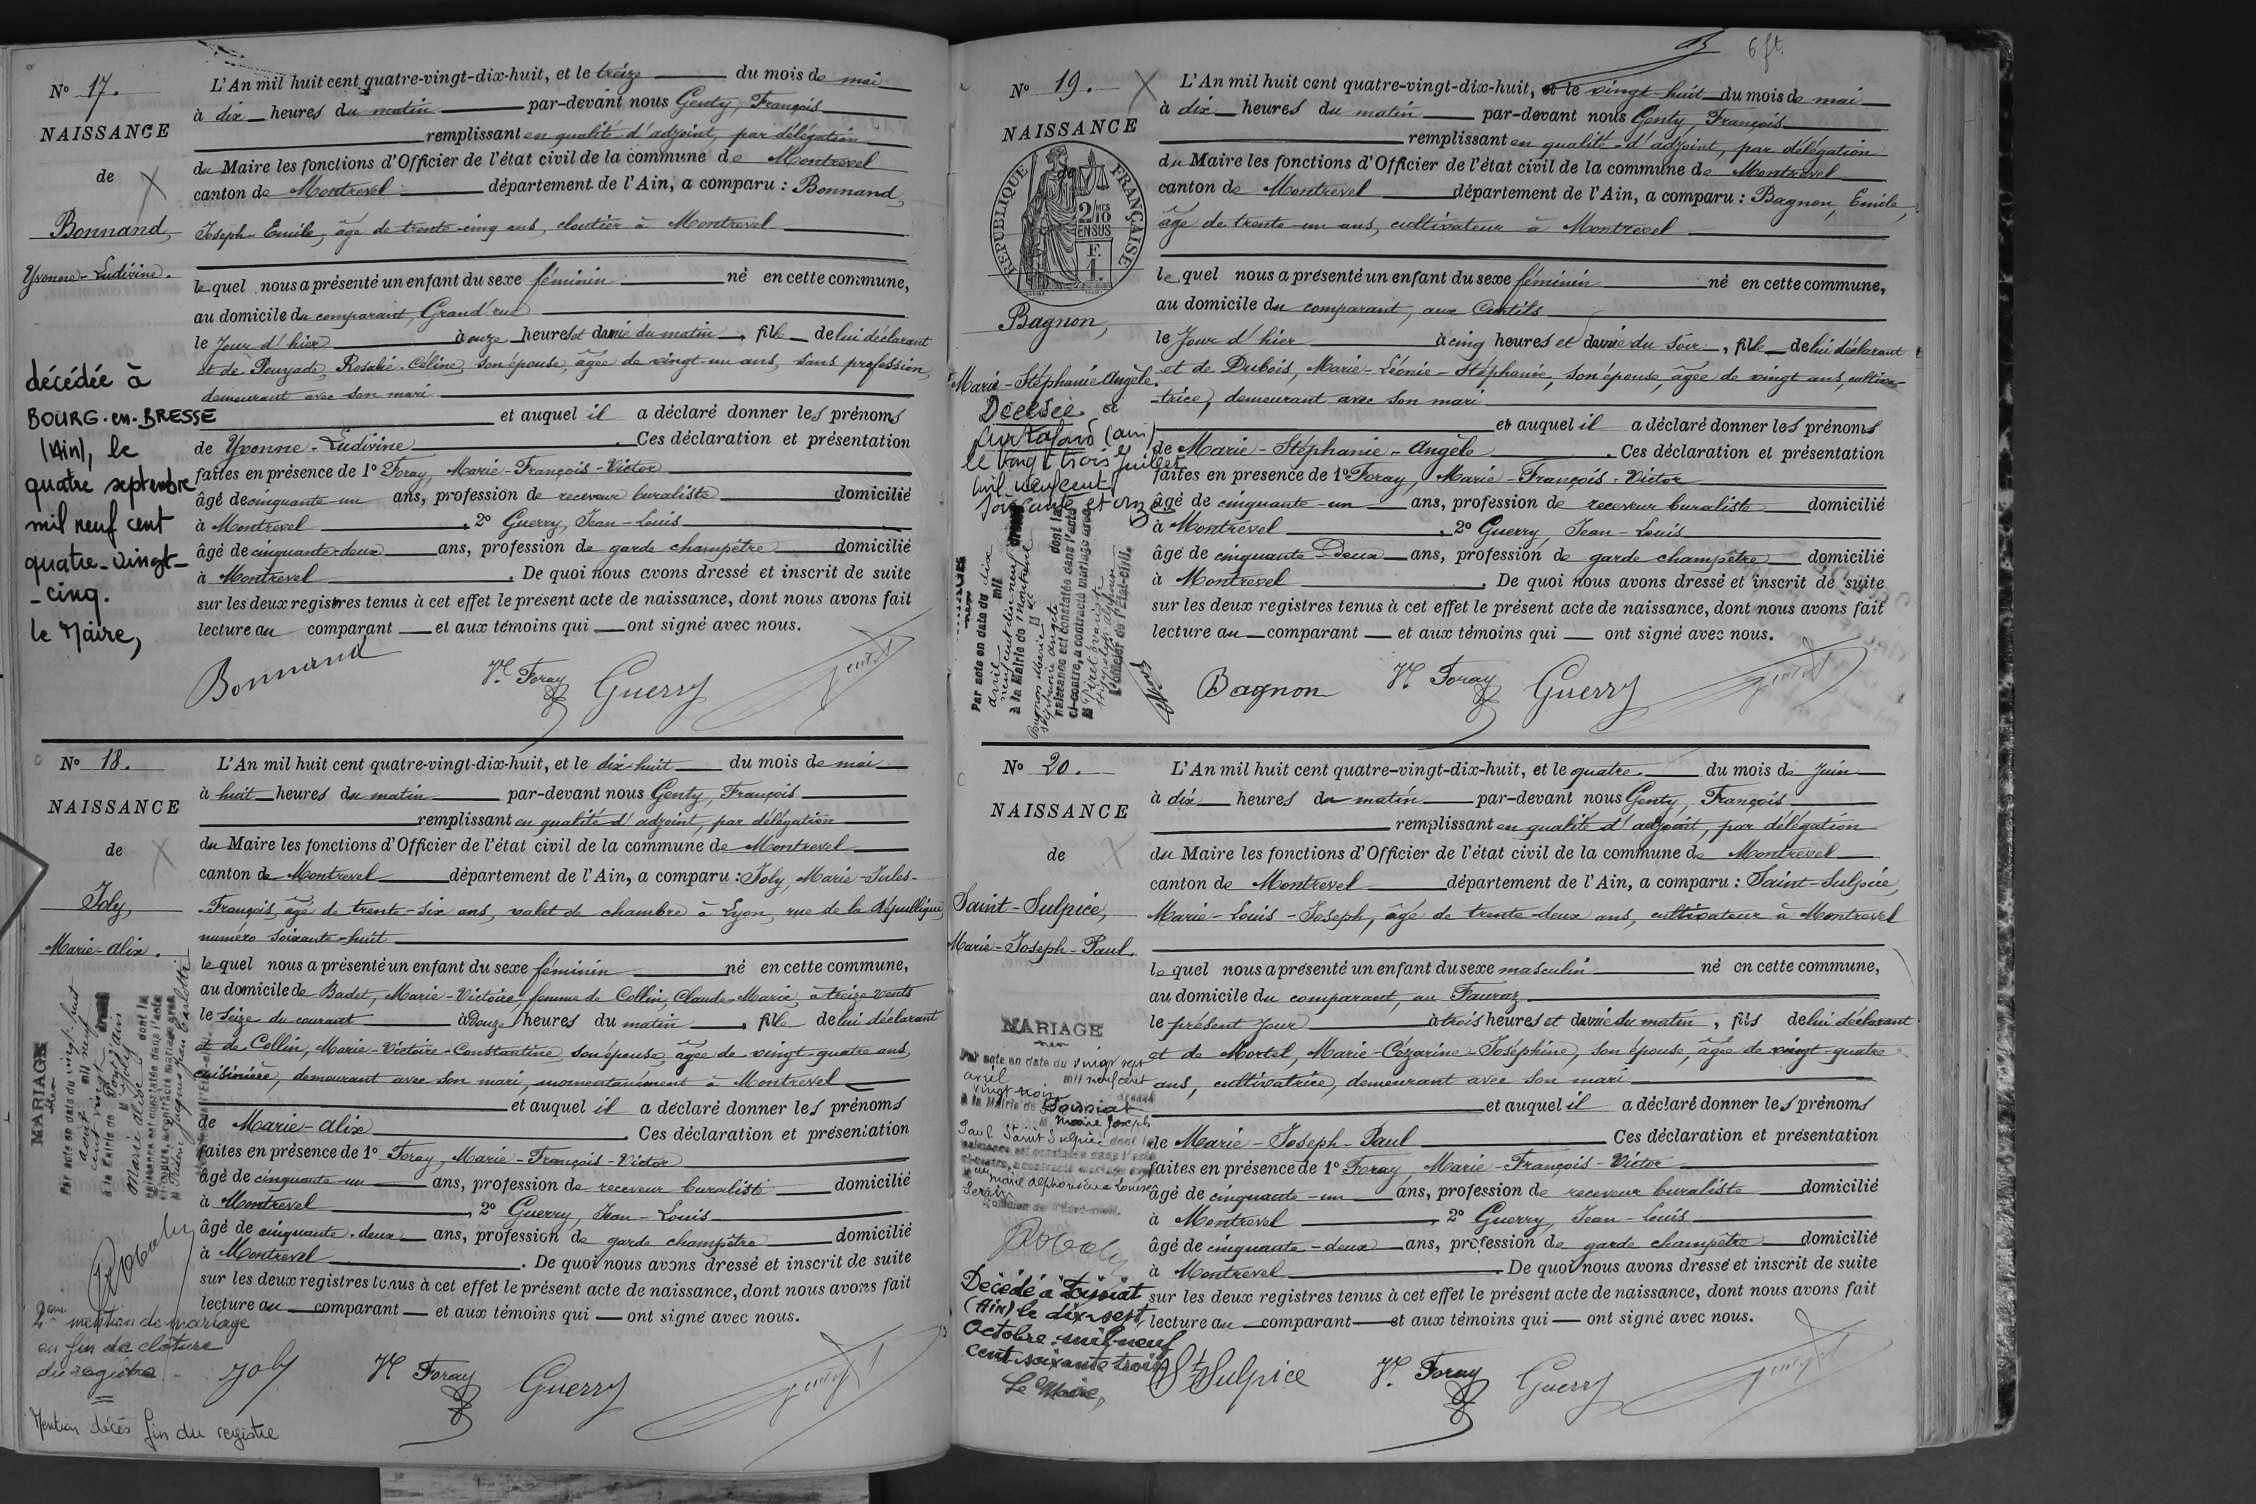 N° 17.
NAISSANCE
de
Bonnand,
Yvonne-Ludivine.
décédée à
BOURG-en-BRESSE
(Ain), le
quatre septembre
mil neuf cent
quatre-vingt-
-cinq.
le Maire,
L'An mil huit cent quatre-vingt-dix-huit, et le treize du mois de mai
à dix heures du matin par-devant nous Genty, François
remplissant en qualité d'adjoint, par délégation
du Maire les fonctions d'Officier de l'état civil de la commune de Montrevel
canton de Montrevel département de l'Ain, a comparu : Bonnand,
Joseph Emile, âgé de trente-cinq ans, cloutier à Montrevel
lequel nous a présenté un enfant du sexe féminin né en cette commune,
au domicile du comparant, Grand'rue
le Jour d'hier à onze heures et demie du matin, fille de lui déclarant
et de Pouzade, Rosalie-Céline, son épouse, âgée de vingt-un ans, sans profession,
demeurant avec son mari
et auquel il a déclaré donner les prénoms
de Yvonne-Ludivine. Ces déclaration et présentation
faites en présence de 1° Foray, Marie-François-Victor
âgé de cinquante un ans, profession de receveur buraliste domicilié
à Montrevel, 2° Guerry, Jean-Louis
âgé de cinquante-deux ans, profession de garde champêtre domicilié
à Montrevel. De quoi nous avons dressé et inscrit de suite
sur les deux registres tenus à cet effet le présent acte de naissance, dont nous avons fait
lecture au comparant et aux témoins qui ont signé avec nous.
Bonnand Vr Foray Guerry Genty
N° 18.
NAISSANCE
de
Joly,
Marie-Alix.
MARIAGE
Par acte en date du vingt-huit
août mil neuf
cent vingt
à la Mairie de
Marie Alix Joly dont la
naissance est constatée dans l'acte
ci-contre, a contracté mariage avec
2ème mention de mariage
en fin de clôture
du registre
Mention décès fin du registre
L'An mil huit cent quatre-vingt-dix-huit, et le dix-huit du mois de mai
à huit heures du matin par-devant nous Genty, François
remplissant en qualité d'adjoint, par délégation
du Maire les fonctions d'Officier de l'état civil de la commune de Montrevel
canton de Montrevel département de l'Ain, a comparu : Joly, Marie-Jules-
François, âgé de trente-six ans, valet de chambre à Lyon, rue de la République
numéro soixante-huit
lequel nous a présenté un enfant du sexe féminin né en cette commune,
au domicile de Badet, Marie-Victoire, femme de Collin, Claude-Marie, à treize Vents
le seize du courant à douze heures du matin, fille de lui déclarant
et de Collin, Marie-Victoire-Constantine, son épouse, âgée de vingt-quatre ans,
cuisinière, demeurant avec son mari, momentanément à Montrevel
et auquel il a déclaré donner les prénoms
de Marie-Alix. Ces déclaration et présentation
faites en présence de 1° Foray, Marie-François-Victor
âgé de cinquante-un ans, profession de receveur buraliste domicilié
à Montrevel, 2° Guerry, Jean-Louis
âgé de cinquante-deux ans, profession de garde champêtre domicilié
à Montrevel. De quoi nous avons dressé et inscrit de suite
sur les deux registres tenus à cet effet le présent acte de naissance, dont nous avons fait
lecture au comparant et aux témoins qui ont signé avec nous.
Joly Vr Foray Guerry Genty
6 ft.
N° 19.
NAISSANCE
de
RÉPUBLIQUE FRANÇAISE
2/10MES
EN SUS
F.
1.
Bagnon,
Marie-Stéphanie Angèle.
Décédée à
(ain)
le vingt trois Juillet
mil neuf cent
soixante et onze
Par acte en date du dix
avril mil
neuf cent dix neuf
à la Mairie de Montrevel
Bagnon Marie
Stéphanie Angèle dont la
naissance est constatée dans l'acte
ci-contre, a contracté mariage avec
L'Officier de l'État-civil.
L'An mil huit cent quatre-vingt-dix-huit, et le vingt-huit du mois de mai
à dix heures du matin par-devant nous Genty, François
remplissant en qualité d'adjoint, par délégation
du Maire les fonctions d'Officier de l'état civil de la commune de Montrevel
canton de Montrevel département de l'Ain, a comparu : Bagnon, Emile,
âgé de trente-un ans, cultivateur à Montrevel
lequel nous a présenté un enfant du sexe féminin né en cette commune,
au domicile du comparant, aux Curtils
le Jour d'hier à cinq heures et demie du soir, fille de lui déclarant
et de Dubois, Marie-Léonie-Stéphanie, son épouse, âgée de vingt ans, cultiva-
-trice, demeurant avec son mari
et auquel il a déclaré donner les prénoms
de Marie-Stéphanie-Angèle. Ces déclaration et présentation
faites en présence de 1° Foray, Marie-François-Victor
âgé de cinquante-un ans, profession de receveur buraliste domicilié
à Montrevel, 2° Guerry, Jean-Louis
âgé de cinquante-Deux ans, profession de garde champêtre domicilié
à Montrevel. De quoi nous avons dressé et inscrit de suite
sur les deux registres tenus à cet effet le présent acte de naissance, dont nous avons fait
lecture au comparant et aux témoins qui ont signé avec nous.
Bagnon Vr Foray Guerry Genty
N° 20.
NAISSANCE
de
Saint-Sulpice,
Marie-Joseph-Paul.
MARIAGE
Par acte en date du vingt sept
avril mil neuf cent
à la Mairie de
Marie Joseph
Paul Saint Sulpice dont la
naissance est constatée dans l'acte
ci-contre, a contracté mariage avec
Marie Alphonsine Louise
L'Officier de l'État-civil.
Décédé à
(Ain) le dix-sept
Octobre mil neuf
cent soixante trois
Le Maire,
L'An mil huit cent quatre-vingt-dix-huit, et le quatre du mois de Juin
à dix heures du matin par-devant nous Genty, François
remplissant en qualité d'adjoint, par délégation
du Maire les fonctions d'Officier de l'état civil de la commune de Montrevel
canton de Montrevel département de l'Ain, a comparu : Saint-Sulpice,
Marie-Louis-Joseph, âgé de trente-deux ans, cultivateur à Montrevel
lequel nous a présenté un enfant du sexe masculin né en cette commune,
au domicile du comparant, au Fauraz
le présent Jour à trois heures et demie du matin, fils de lui déclarant
et de Mortel, Marie-Cézarine-Joséphine, son épouse, âgée de vingt-quatre
ans, cultivatrice, demeurant avec son mari
et auquel il a déclaré donner les prénoms
de Marie-Joseph-Paul Ces déclaration et présentation
faites en présence de 1° Foray, Marie-François-Victor
âgé de cinquante-un ans, profession de receveur buraliste domicilié
à Montrevel, 2° Guerry, Jean-Louis
âgé de cinquante-deux ans, profession de garde champêtre domicilié
à Montrevel. De quoi nous avons dressé et inscrit de suite
sur les deux registres tenus à cet effet le présent acte de naissance, dont nous avons fait
lecture au comparant et aux témoins qui ont signé avec nous.
St Sulpice Vr Foray Guerry Genty